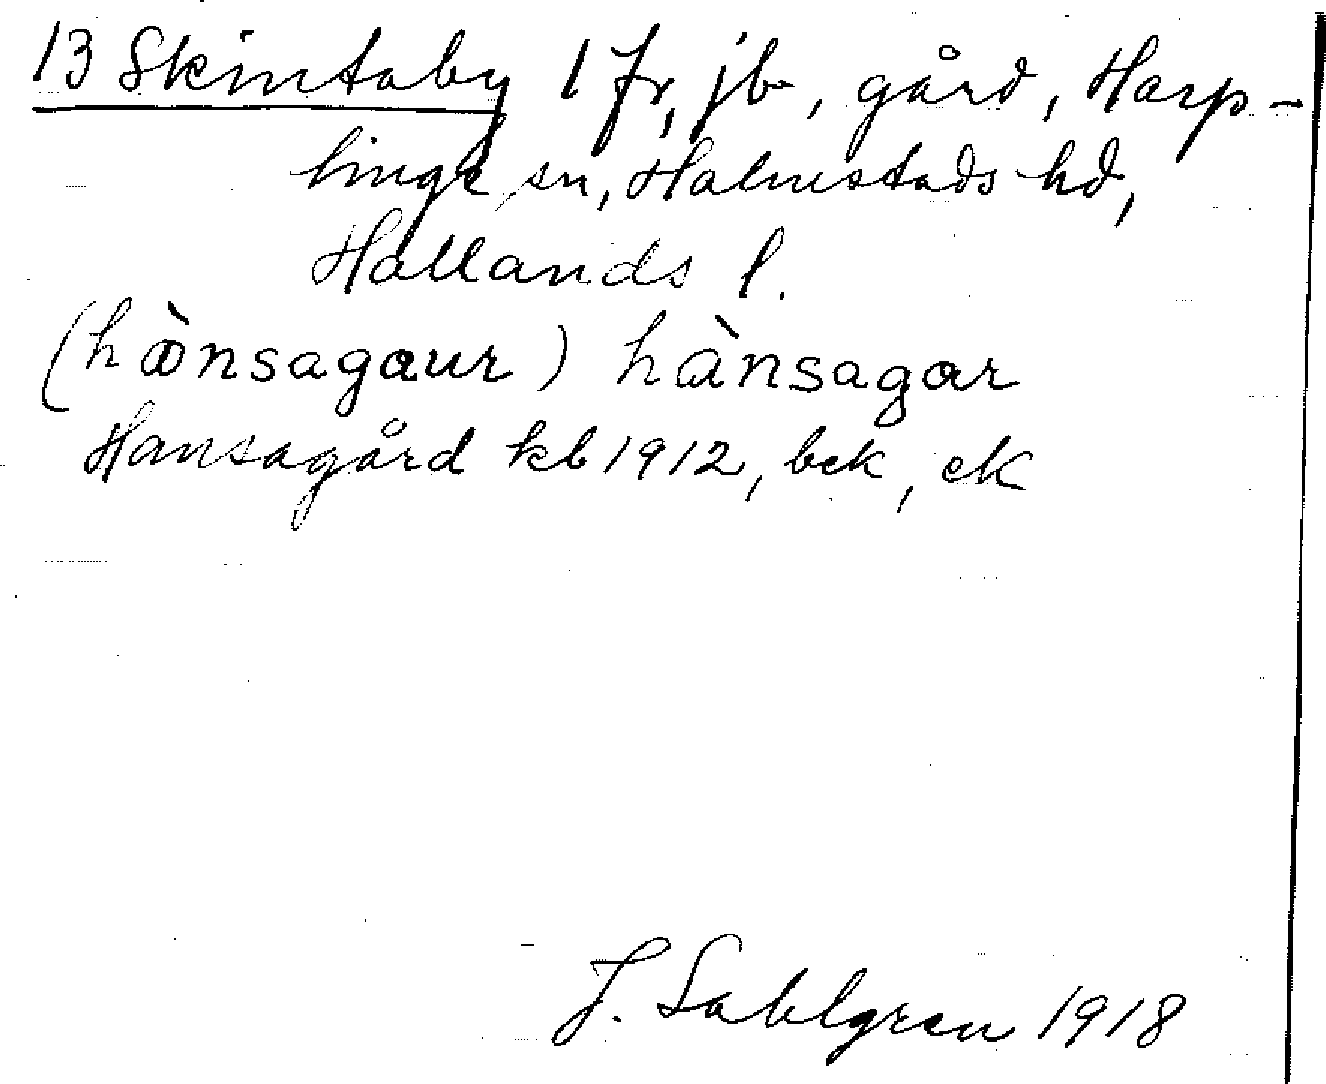 13 Skintaby 1 fr, jb, gård, Harp-
linge sn, Halmstads hd,
Hallands l.
(hònsagaur) hànsagar
Hansagård kb 1912, bek, eK
J. Sahlgren 1918